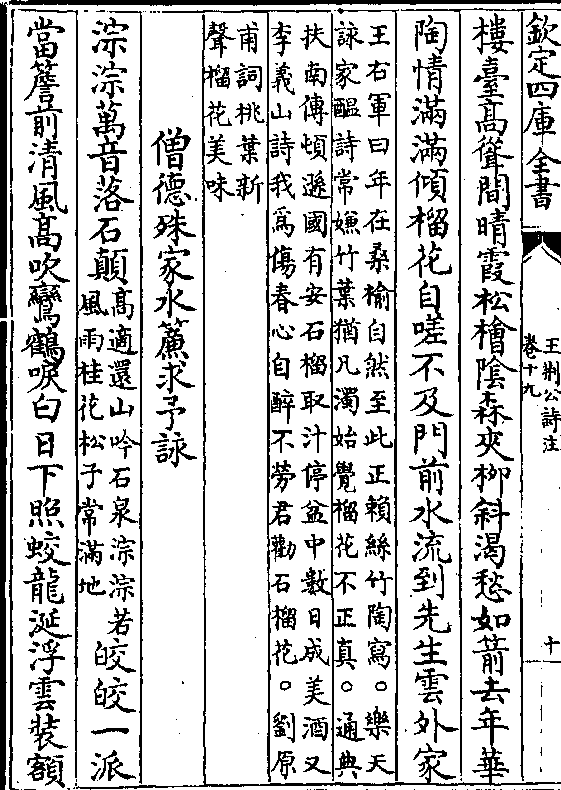 欽定四庫全書
王荊公詩注
卷十九
十
樓臺高聳間晴霞松檜陰森夾柳斜渴愁如箭去年華
陶情滿滿傾榴花自嗟不及門前水流到先生雲外家
王右軍曰年在桑榆自然至此正賴絲竹陶寫。樂天
詠家醖詩常嫌竹葉猶凡濁始覺榴花不正真。通典
扶南傳頓遜國有安石榴取汁停盆中數日成美酒又
李義山詩我爲傷春心自醉不勞君勸石榴花。劉原
甫詞桃葉新
聲榴花美味
僧德殊家水簾求予詠
淙淙萬音落石顛高適還山吟石泉淙淙若
風雨桂花松子常滿地皎皎一派
當簷前清風高吹鸞鶴唳白日下照蛟龍涎浮雲裝額